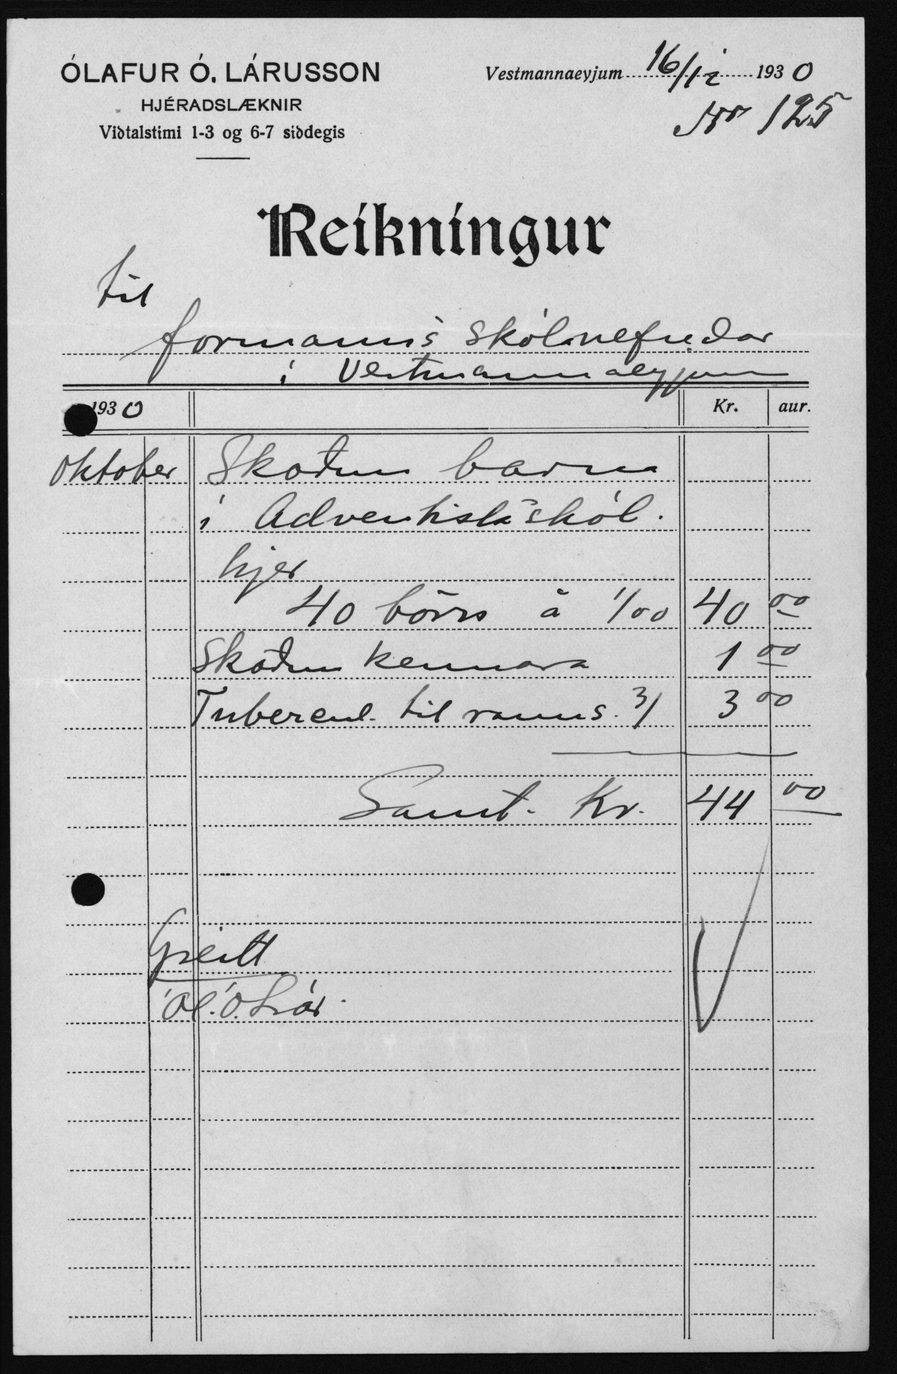 ÓLAFUR Ó. LÁRUSSON
HJÉRADSLÆKNIR
Viðtalstimi 1-3 og 6-7 siðdegis
Vestmannaeyjum 16/12 1930
Nr 125
Reikningur
til
formanns skólanefndar
í Vestmannaeyjum
1930 Kr. aur.
Oktober Skoðun barna
í Adventistaskól.
hjer
40 börn á 1/00 40 00
Skoðun kennara 1 00
Tubercul. til ranns. 3/ 3 00
Samt. Kr. 44 00
Greitt
Ól. Ó. Lár.